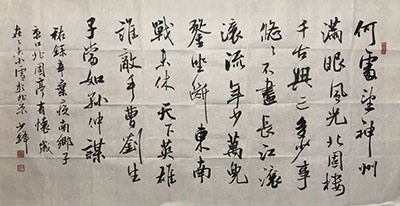 何處望神州
滿眼風光北固樓
千古興亡多少事
悠悠不盡長江滚
滚流年少萬兜
鍪坐斷東南
戰未休天下英雄
誰敵手曹劉生
子當如孫仲謀
錄辛棄疾南鄉子
京口北固亭有懷歲
在小雪於北京